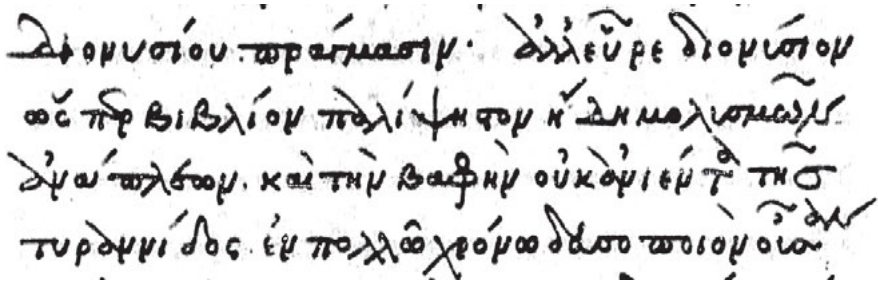 Διονυσίου πράγμασιν· ἀλλεῦρε διονύσιον
ὥσπερ βιβλίον παλίψηστον ἤδη μολυσμῶν
ἀνάπλεων. καὶ τὴν βαφὴν οὐκ ἀνιέντα τῆς
τυραννίδος. ἐν πολλῶ χρόνω δευσοποιὸν οὖσαν